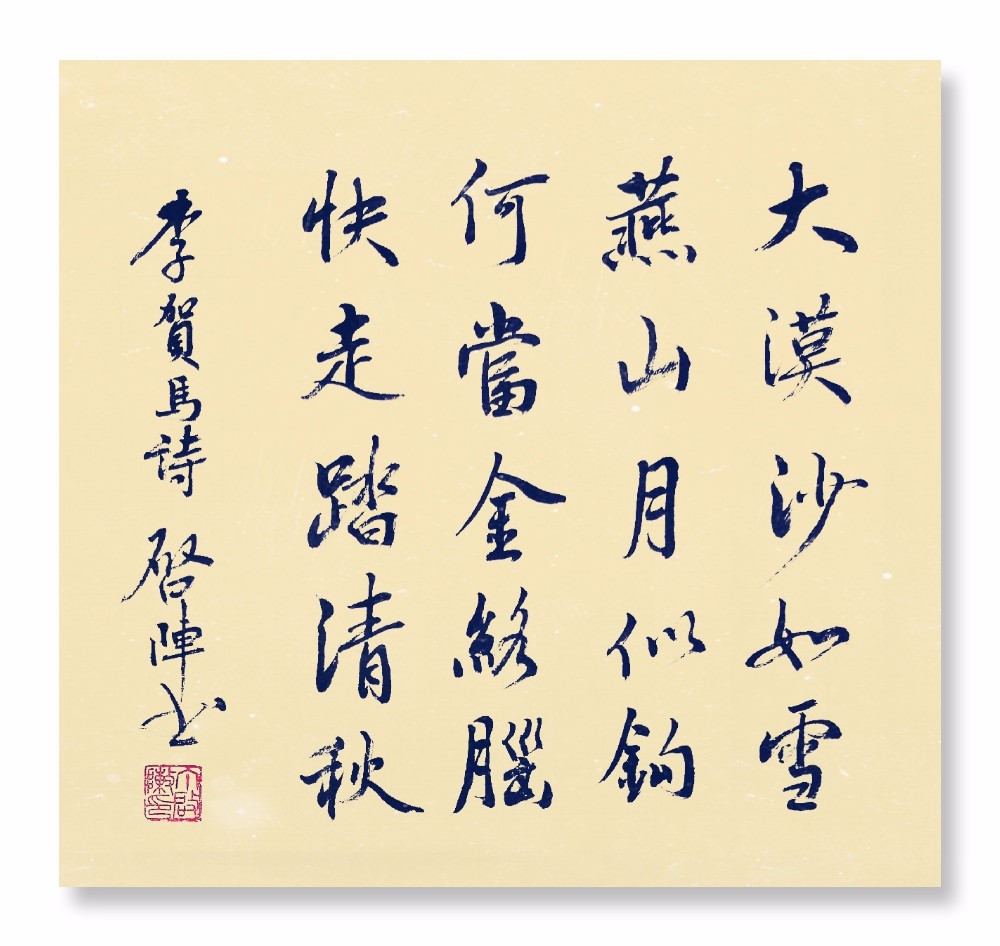 大漠沙如雪
燕山月似鈎
何當金絡腦
快走踏清秋
李賀馬詩 啓陣书